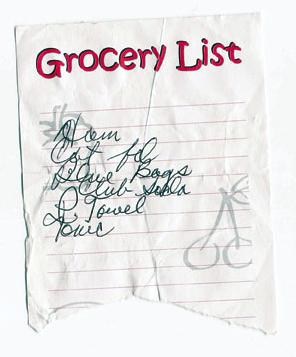 Grocery List
Ham
Cat fd
Bags
Club soda
P. Towel
Tonic